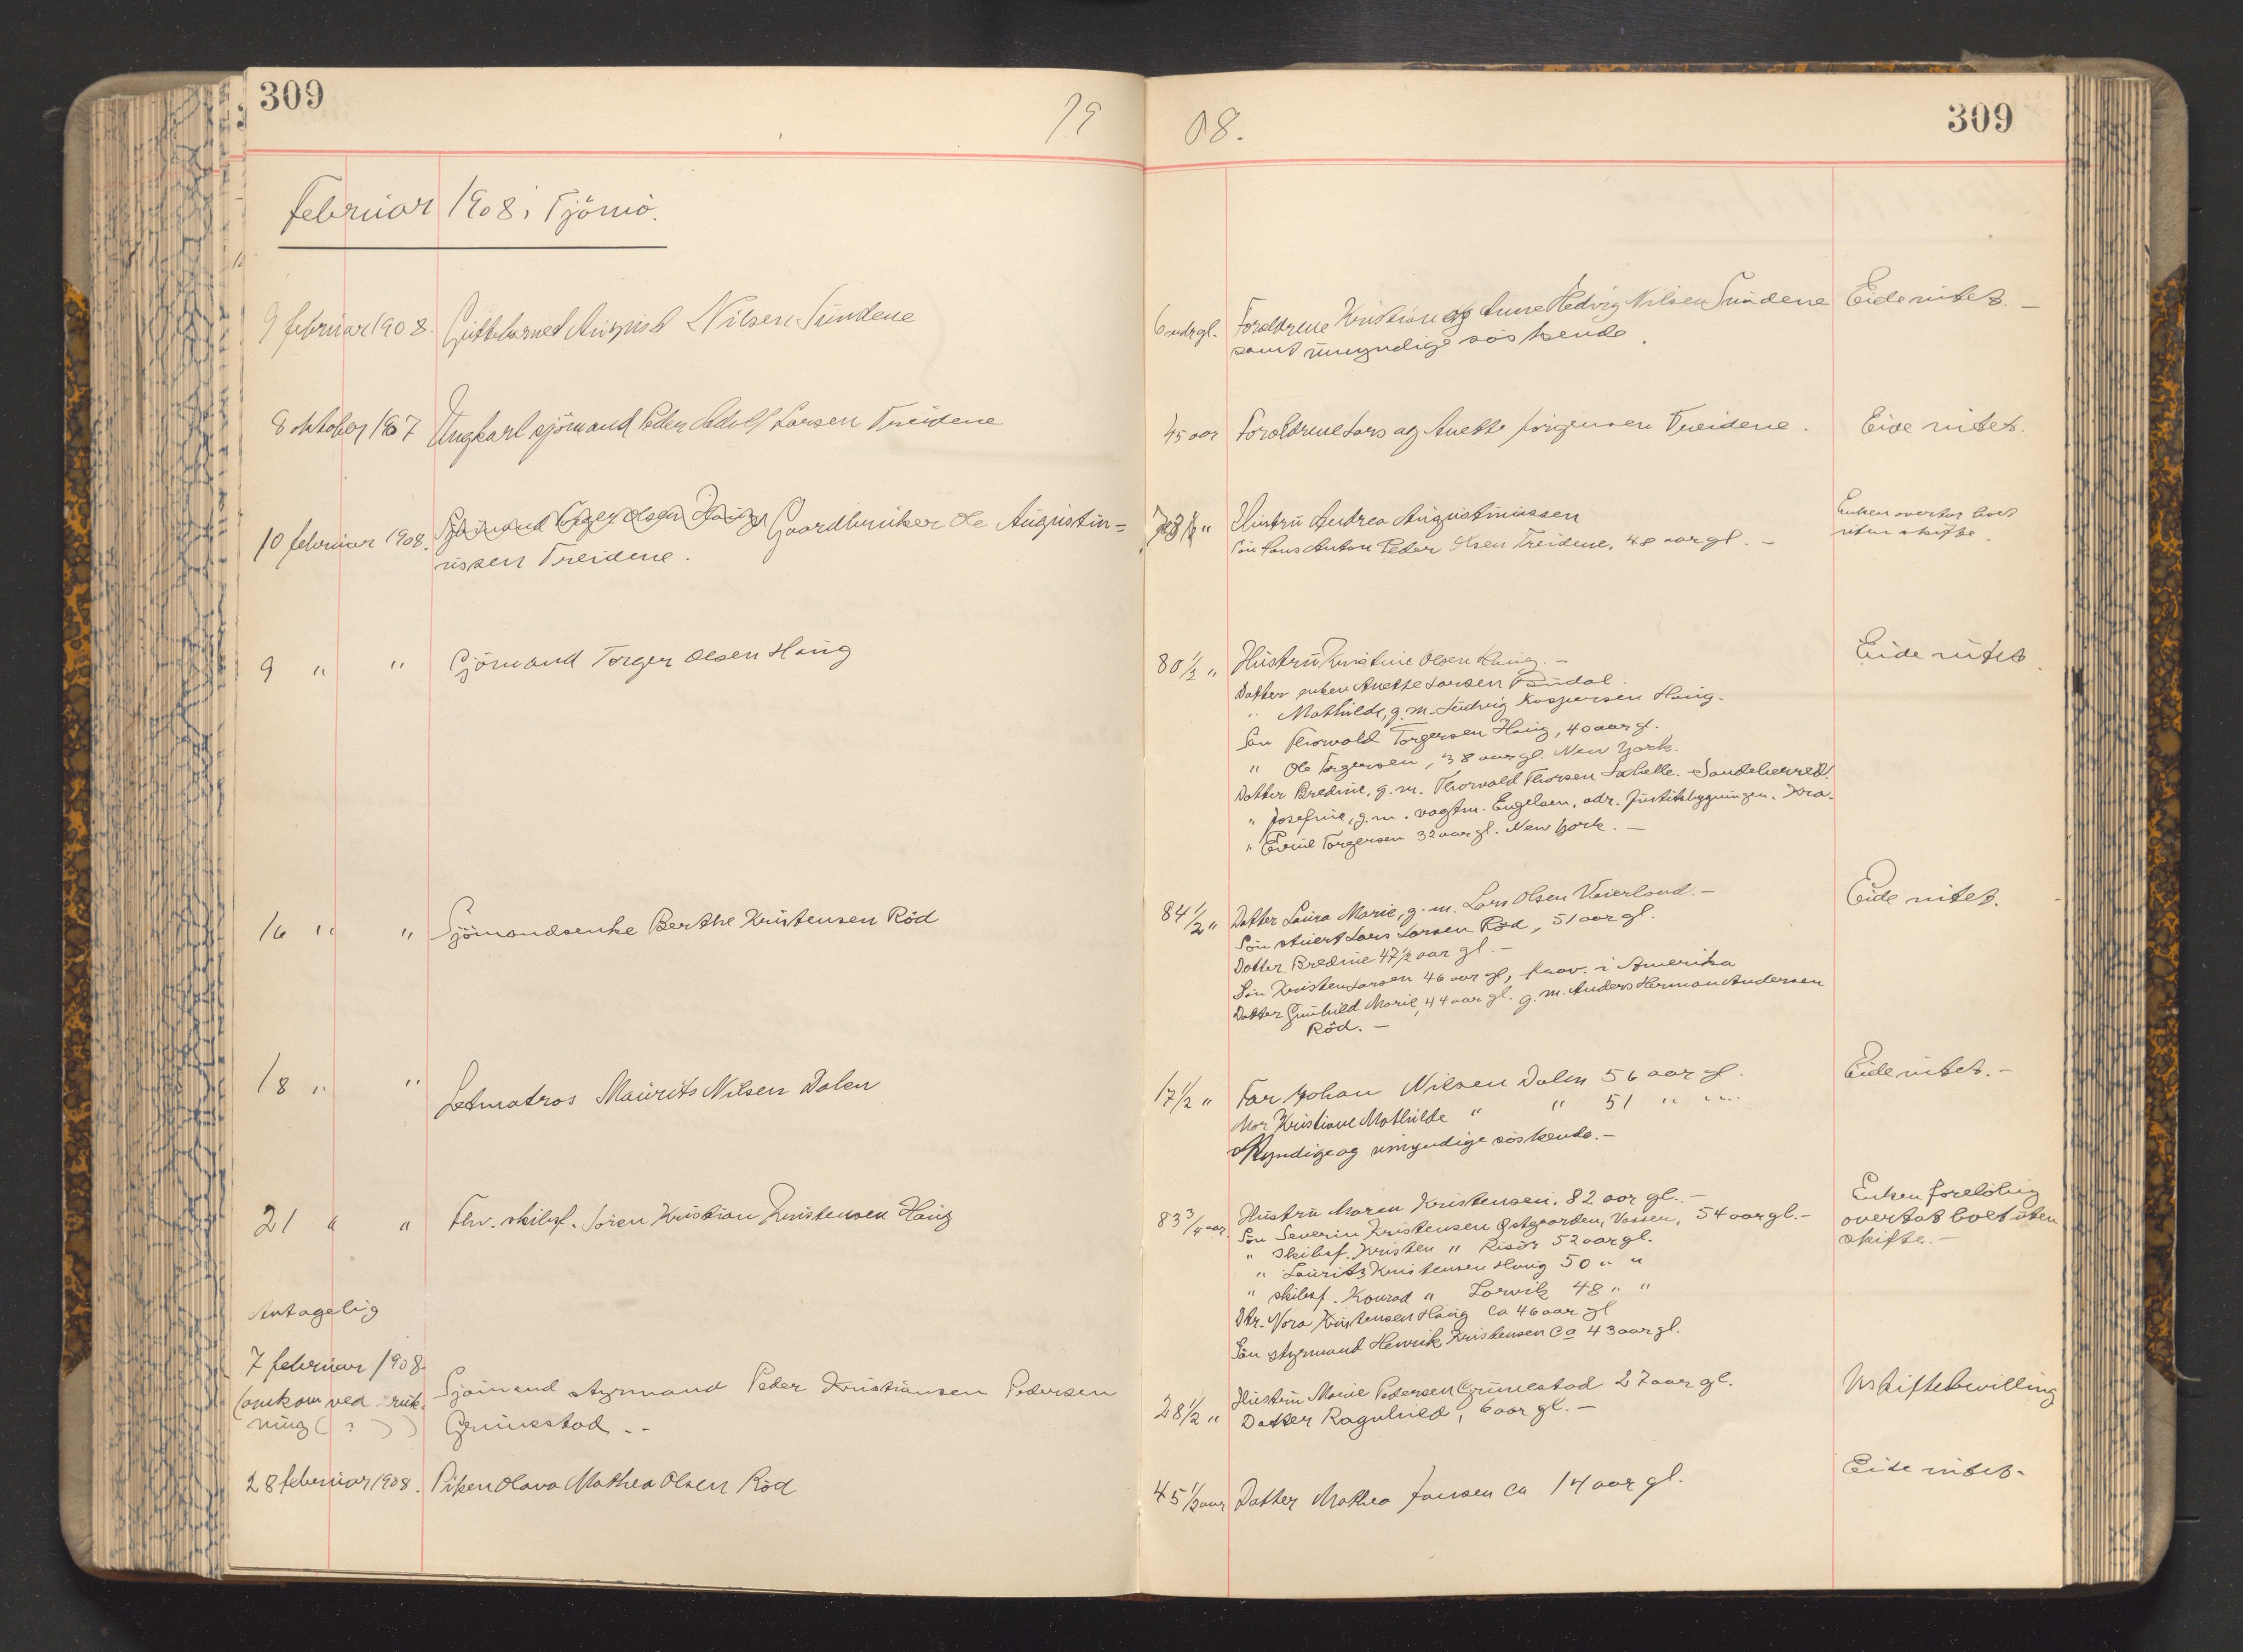 309
19
08.
309
Februar 1908 i Tjömö.
9 februar 1908. Guttebarnet August Nilsen Sundene
6 mdr gl. Foreldrene Kristian og Anne Hedvig Nilsen Sundene
samt umyndige söskende.
Eide intet. —
8 oktober 1907 Ungkarl sjömand Peder Adolf Larsen Treidene
45 aar Foreldrene Lars og Anette Jörgensen Treidene.
Eide intet.
10 februar 1908. Sjömand Torger Olsen Haug Gaardbruker Ole Augustin=
ussen Treidene.
" Hustru Andrea Augustinussen
Sön Hans Anton Peder Olsen Treidene, 48 aar gl. —
Enken overtar boet
uten skifte.
9 " " Sjömand Torger Olsen Haug
80 1/2 " Hustru Kristine Olsen Haug. —
Datter enken Anette Larsen Budal.
" Mathilde, g. m. Ludvig Kaspersen Haug.
Sön Thorvald Torgersen Haug, 40 aar gl.
" Ole Torgersen, 38 aar gl. New York.
Datter Bredine, g. m. Thorvald Thorsen Sandeherred.
" Josefine, g. m. vagtm. Engelsen, adr. Justitsbygningen. Kra.
" Emil Torgersen 32 aar gl. New York. —
Eide intet.
16 " " Sjömandsenke Berthe Kristensen Röd
84 1/2 " Datter Laura Marie, g. m. Lars Olsen Veierland. —
Sön Lars Larsen Röd, 51 aar gl.
Datter Bredine 47 1/2 aar gl. —
Sön Kristen Larsen 46 aar gl, i Amerika
Datter Gunhild Marie, 44 aar gl. g. m. Anders Herman Andersen
Röd. —
Eide intet.
18 " " Letmatros Maurits Nilsen Dalen
17 1/2 " Far Johan Nilsen Dalen 56 aar gl.
Mor Kristiane Mathilde " " 51 " "
Myndige og umyndige söskende. —
Eide intet. —
21 " " Fhv. skibsf. Sören Kristian Kristensen Haug
83 3/4 aar. Hustru Maren Kristensen, 82 aar gl. —
Sön Severin Kristensen Østgaarden, Vassen, 54 aar gl. —
" skibsf. Kristen " Risör 52 aar gl.
" Lauritz Kristensen Haug 50 " "
" skibsf. Konrad " Larvik 48 " "
Dtr. Nora Kristensen Haug Ca 46 aar gl
Sön styrmand Henrik Kristensen Ca 43 aar gl.
Enken forelöbig
overtat boet uten
skifte. —
Antagelig
7 februar 1908.
(omkom ved
ning ( ? ) )
Sjömand styrmand Peder Kristiansen Pedersen
Grimestad. —
28 1/2 " Hustru Marie Pedersen Grimestad 27 aar gl.
Datter Ragnhild, 6 aar gl. —
Uskiftebevilling
28 februar 1908. Piken Olava Mathea Olsen Röd
45 1/2 aar Datter Mathea Jansen Ca 14 aar gl.
Eide intet.